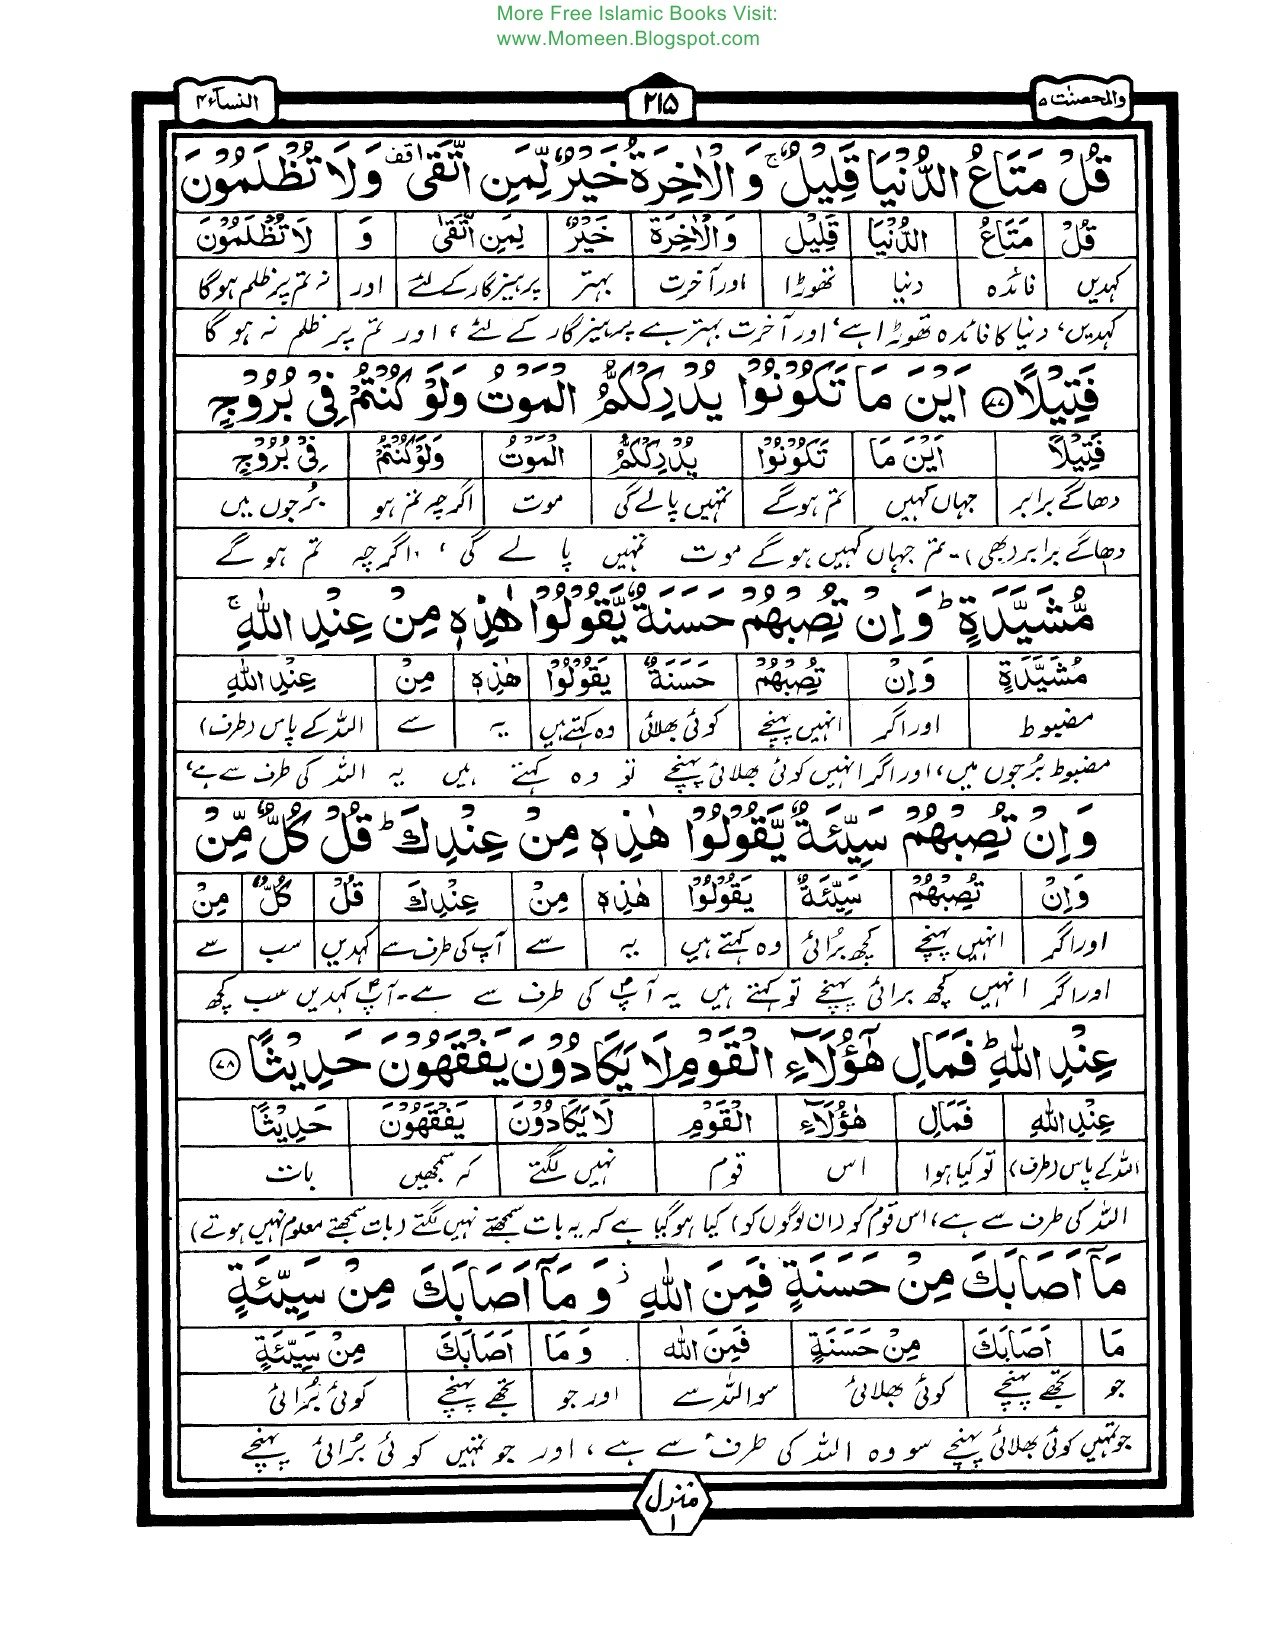 More Free Islamic Books Visit:
www.Momeen.Blogspot.com
والمحصنٰت ۵ ۲۱۵ النسآء ۴
قُلْ مَتَاعُ الدُّنْيَا قَلِيْلٌ ۚ وَالْاٰخِرَةُ خَيْرٌ لِّمَنِ اتَّقٰى وقف وَلَا تُظْلَمُوْنَ
قُلْ مَتَاعُ الدُّنْيَا قَلِيْل وَالْاٰخِرَةُ خَيْرٌ لِمَنِ اتَّقٰى وَ لَا تُظْلَمُوْنَ
کہدیں فائدہ دنیا تھوڑا اور آخرت بہتر پرہیزگار کے لئے اور نہ تم پر ظلم ہوگا
کہدیں، دنیا کا فائدہ تھوڑا ہے، اور آخرت بہتر ہے پرہیزگار کے لئے، اور تم پر ظلم نہ ہو گا
فَتِيْلًا ۷۷ اَيْنَ مَا تَكُوْنُوْا يُدْرِكْكُّمُ الْمَوْتُ وَلَوْ كُنْتُمْ فِيْ بُرُوْجٍ
فَتِيْلًا اَيْنَ مَا تَكُوْنُوْا يُدْرِكْكُّمُ الْمَوْتُ وَلَوْ كُنْتُمْ فِيْ بُرُوْجٍ
دھاگے برابر جہاں کہیں تم ہوگے تمہیں پالے گی موت اگرچہ تم ہو بُرجوں میں
دھاگے برابر (بھی)۔ تم جہاں کہیں ہو گے موت تمہیں پا لے گی، اگرچہ تم ہو گے
مُّشَيَّدَةٍ ؕ وَاِنْ تُصِبْهُمْ حَسَنَةٌ يَّقُوْلُوْا هٰذِهٖ مِنْ عِنْدِ اللّٰهِ ۚ
مُشَيَّدَةٍ وَاِنْ تُصِبْهُمْ حَسَنَةٌ يَقُوْلُوْا هٰذِهٖ مِنْ عِنْدِ اللّٰهِ
مضبوط اور اگر انہیں پہنچے کوئی بھلائی وہ کہتے ہیں یہ سے اللہ کے پاس (طرف)
مضبوط بُرجوں میں، اور اگر انہیں کوئی بھلائی پہنچے تو وہ کہتے ہیں یہ اللہ کی طرف سے ہے،
وَاِنْ تُصِبْهُمْ سَيِّئَةٌ يَّقُوْلُوْا هٰذِهٖ مِنْ عِنْدِكَ ؕ قُلْ كُلٌّ مِّنْ
وَاِنْ تُصِبْهُمْ سَيِّئَةٌ يَقُوْلُوْا هٰذِهٖ مِنْ عِنْدِكَ قُلْ كُلٌّ مِنْ
اور اگر انہیں پہنچے کچھ برائی وہ کہتے ہیں یہ سے آپ کی طرف سے کہدیں سب سے
اور اگر انہیں کچھ برائی پہنچے تو کہتے ہیں یہ آپؐ کی طرف سے ہے۔ آپؐ کہدیں سب کچھ
عِنْدِ اللّٰهِ ؕ فَمَالِ هٰٓؤُلَآءِ الْقَوْمِ لَا يَكَادُوْنَ يَفْقَهُوْنَ حَدِيْثًا ۷۸
عِنْدِ اللّٰهِ فَمَالِ هٰٓؤُلَآءِ الْقَوْمِ لَا يَكَادُوْنَ يَفْقَهُوْنَ حَدِيْثًا
اللہ کے پاس (طرف) تو کیا ہوا اس قوم نہیں لگتے کہ سمجھیں بات
اللہ کی طرف سے ہے، اس قوم کو (ان لوگوں کو) کیا ہو گیا ہے کہ یہ بات سمجھتے نہیں لگتے (بات سمجھتے معلوم نہیں ہوتے)
مَآ اَصَابَكَ مِنْ حَسَنَةٍ فَمِنَ اللّٰهِ ۡ وَ مَآ اَصَابَكَ مِنْ سَيِّئَةٍ
مَا اَصَابَكَ مِنْ حَسَنَةٍ فَمِنَ اللّٰه وَ مَا اَصَابَكَ مِنْ سَيِّئَةٍ
جو تجھے پہنچے کوئی بھلائی سو اللہ سے اور جو تجھے پہنچے کوئی بُرائی
جو تمہیں کوئی بھلائی پہنچے سو وہ اللہ کی طرف سے ہے، اور جو تمہیں کوئی بُرائی پہنچے
منزل ۱